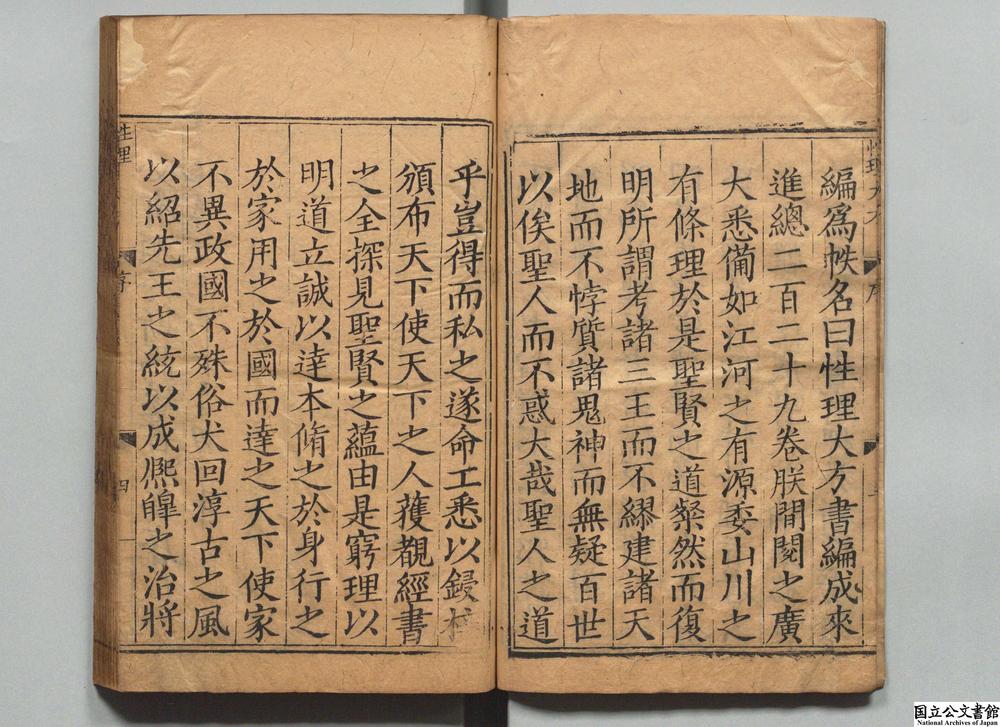 編爲帙名曰性理大方書編成來
進總二百二十九卷朕間閱之廣
大悉備如江河之有源委山川之
有條理於是聖賢之道粲然而復
明所謂考諸三王而不繆建諸天
地而不悖質諸鬼神而無疑百世
以俟聖人而不惑大哉聖人之道
乎豈得而私之遂命工悉以鋟梓
頒布天下使天下之人獲覩經書
之全探見聖賢之蘊由是窮理以
明道立誠以達本脩之於身行之
於家用之於國而達之天下使家
不異政國不殊俗大回淳古之風
以紹先王之統以成熈皥之治將
性理
序
四
国立公文書館
National Archives of Japan